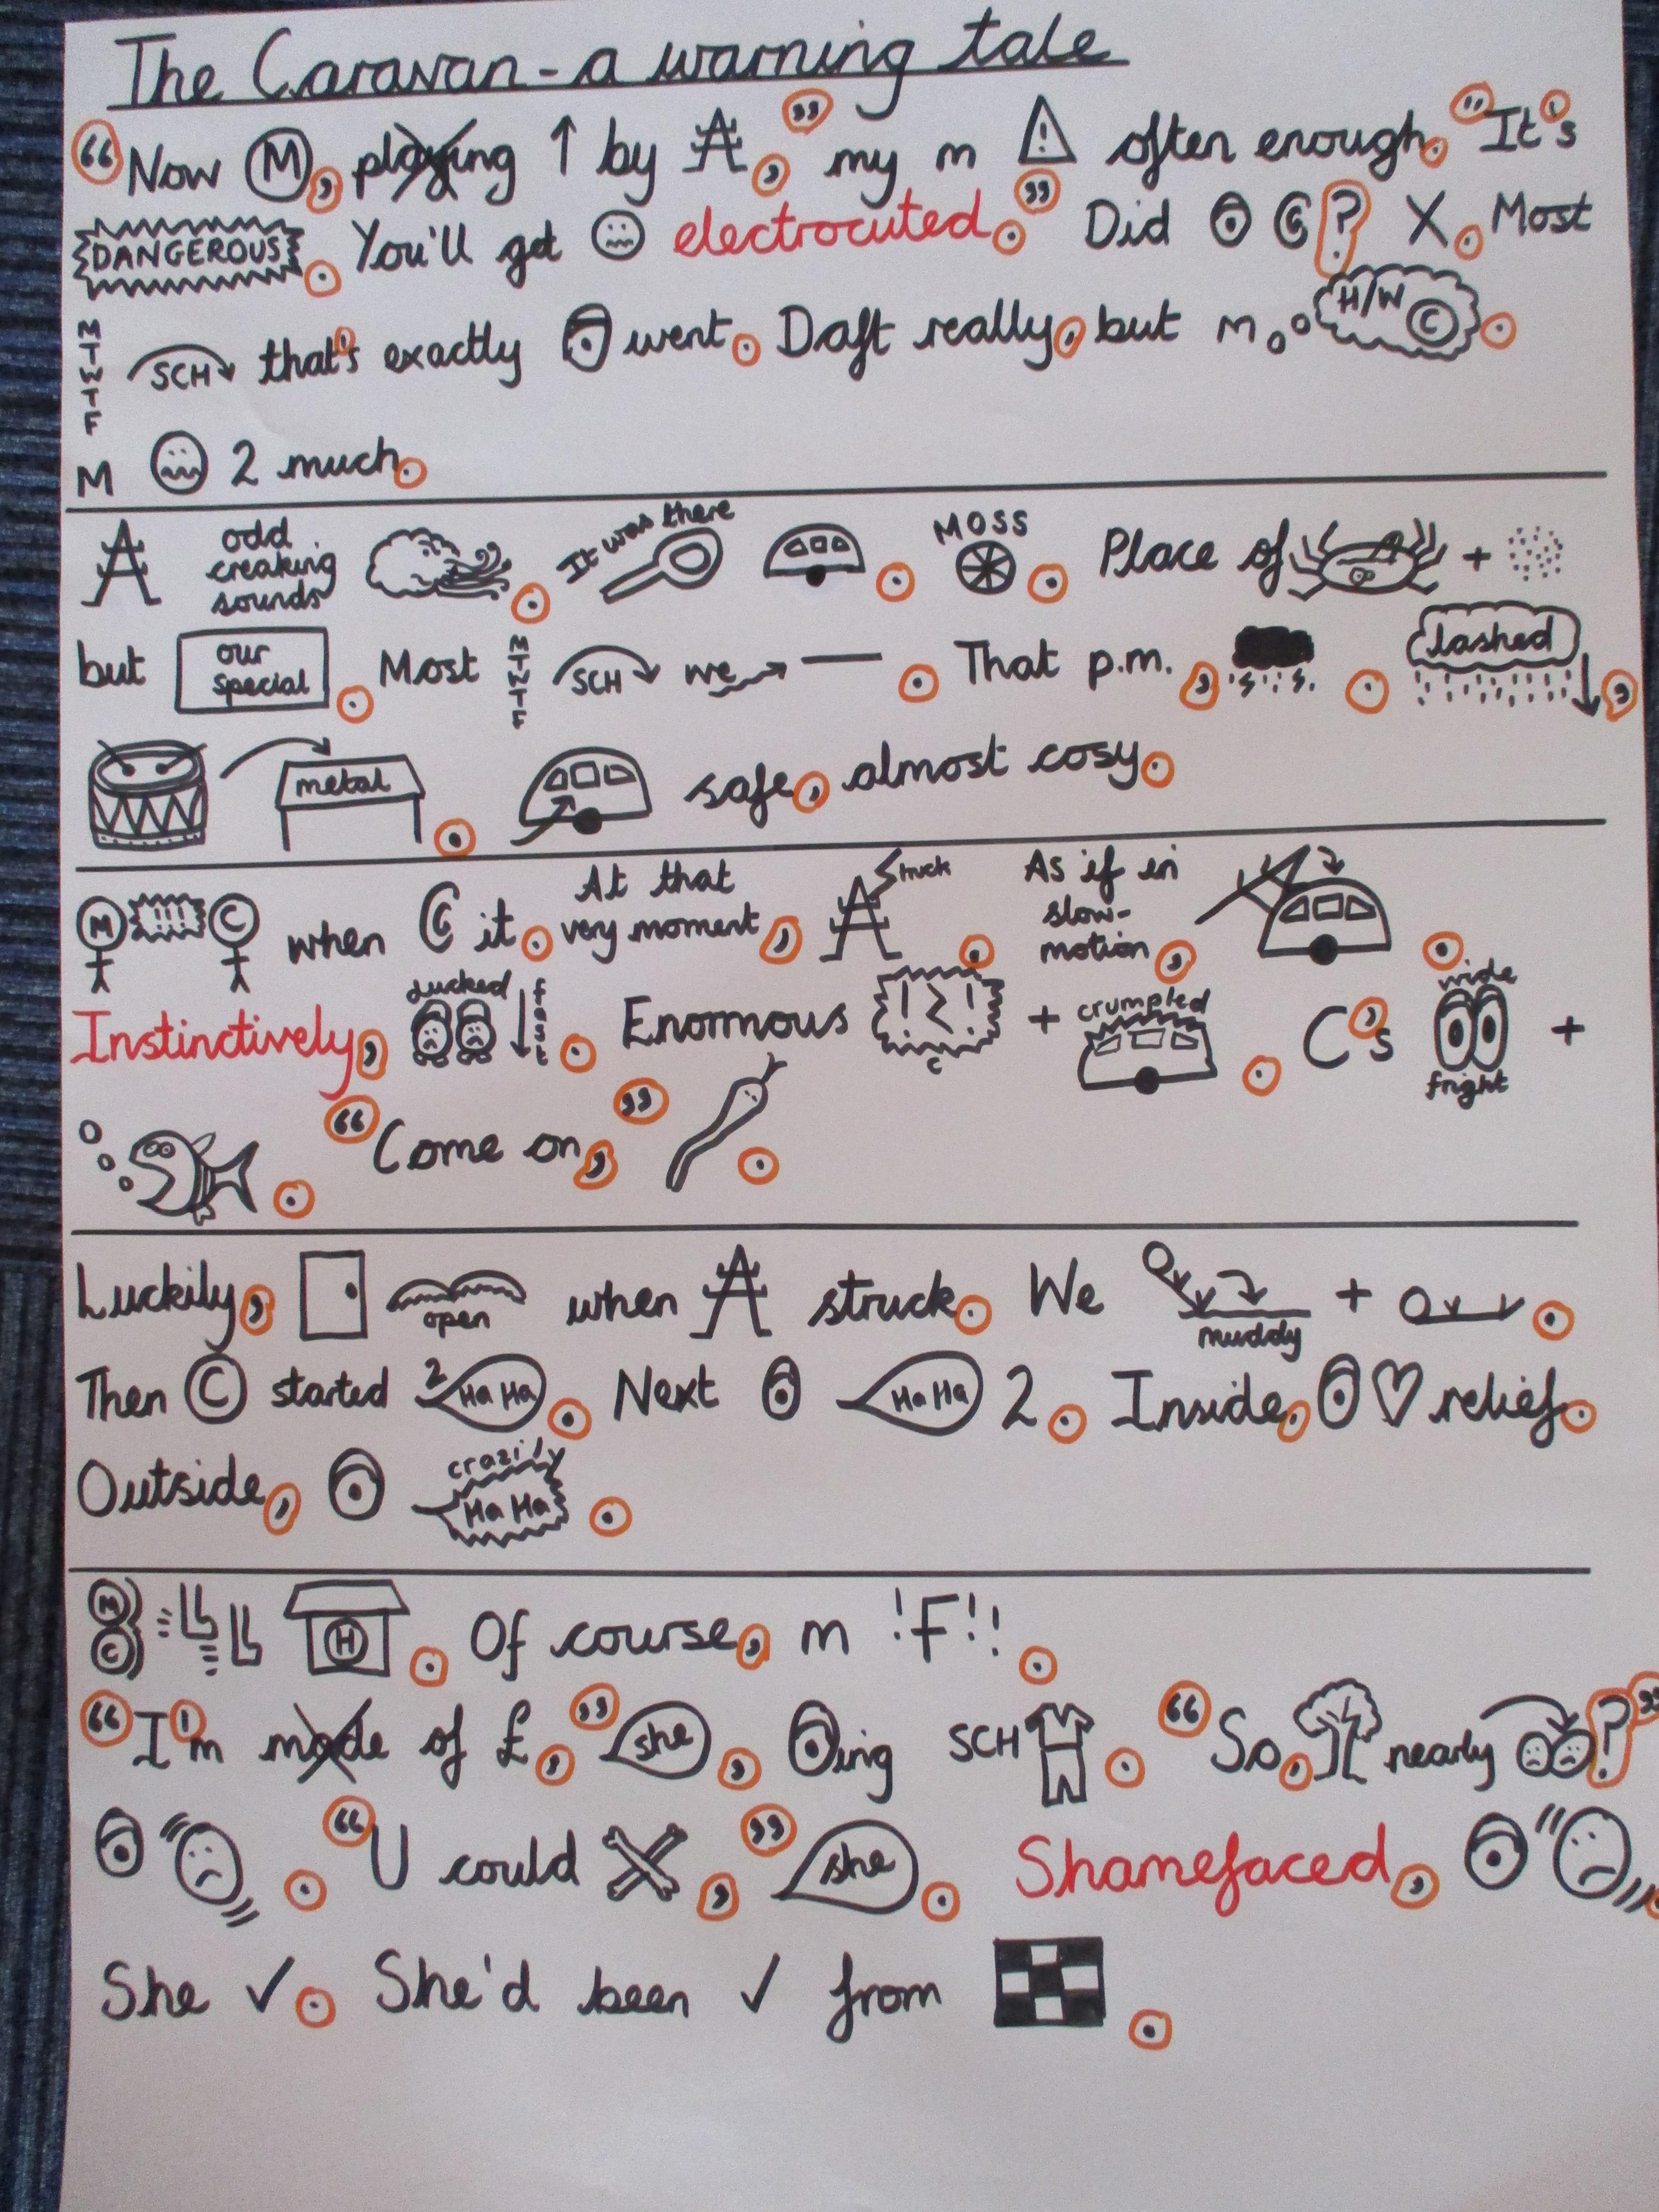 The Caravan - a warning tale
“Now M, playing ↑ by , ” my m ! often enough. "It's
DANGEROUS. You'll get electrocuted.” Did ? X. Most
MTWTF SCH that's exactly went. Daft really, but m H/W C.
M 2 much.
odd creaking sounds. It was there. MOSS. Place of +
but our special. Most MTWTF SCH we —. That p.m., . lashed ↓,
metal. safe, almost cosy.
M !!! C when it. At that very moment, struck. As if in slow-motion, .
Instinctively, ducked ↓ fast. Enormous ! ! + crumpled. C's wide fright +
. “Come on,” .
Luckily, open when struck. We muddy + .
Then C started 2 Ha Ha. Next Ha Ha 2. Inside, ♡ relief.
Outside, crazily Ha Ha.
M C H. Of course, m !F!!.
“I'm made of £,” she, ing SCH. “So, nearly ?”
. “U could , ” she. Shamefaced, 
She ✓. She'd been ✓ from .